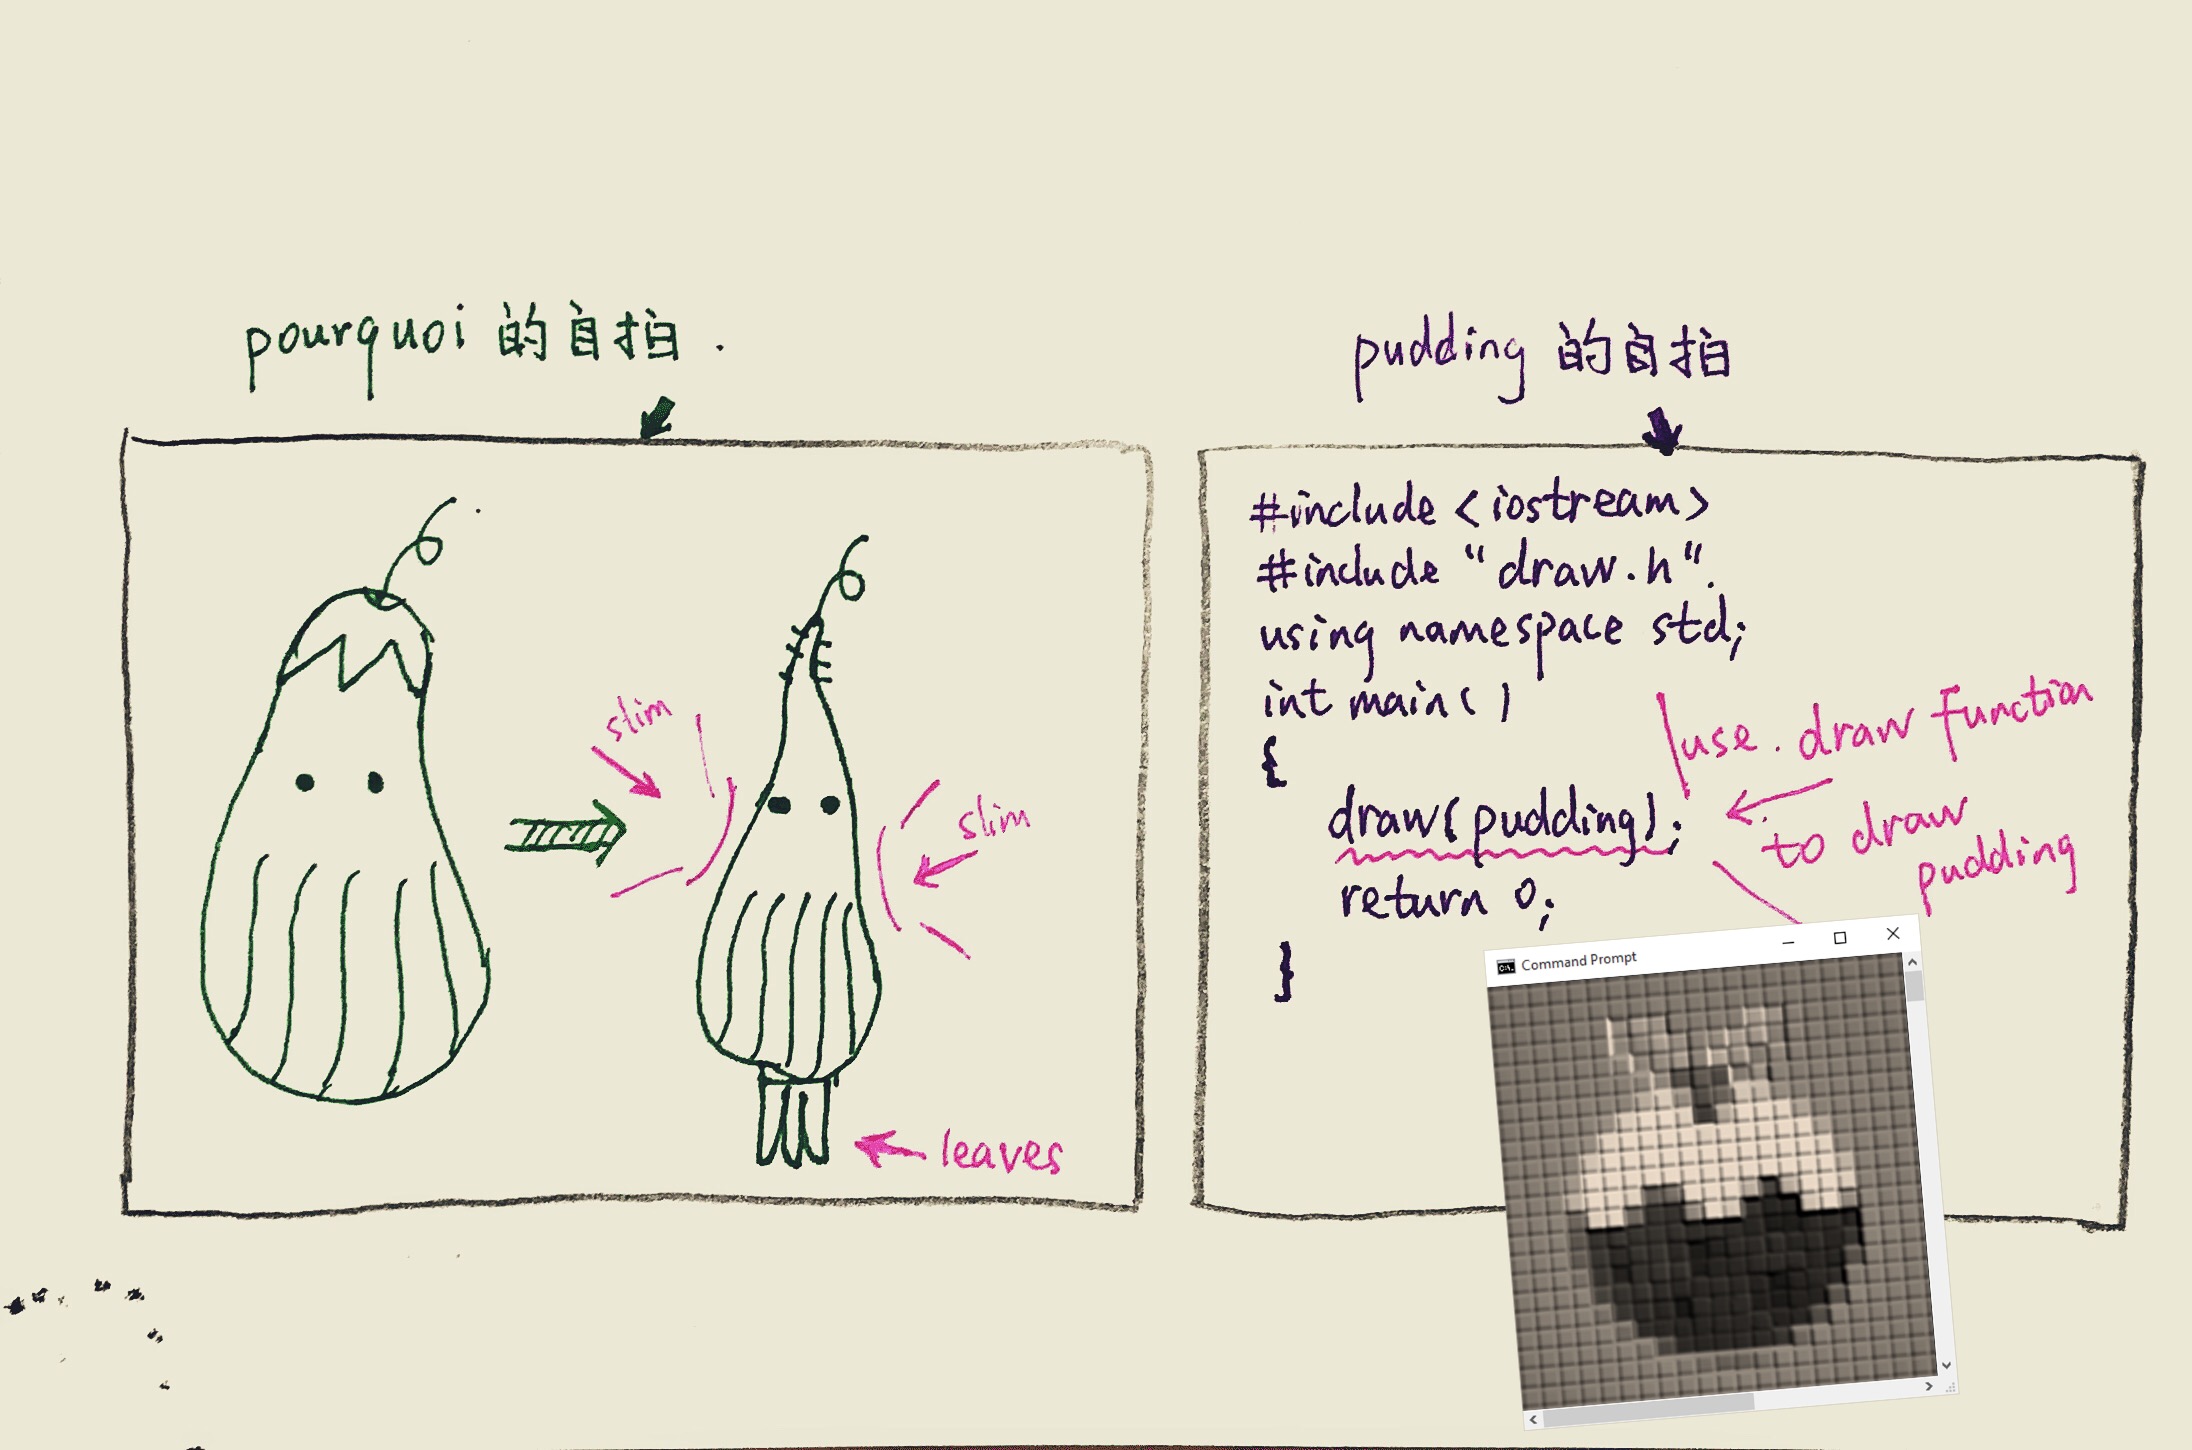 pourquoi 的自拍.
slim
slim
leaves
pudding 的自拍
#include <iostream>
#include "draw.h".
using namespace std;
int main()
{
draw(pudding);
return 0;
}
use. draw function
to draw
pudding
Command Prompt